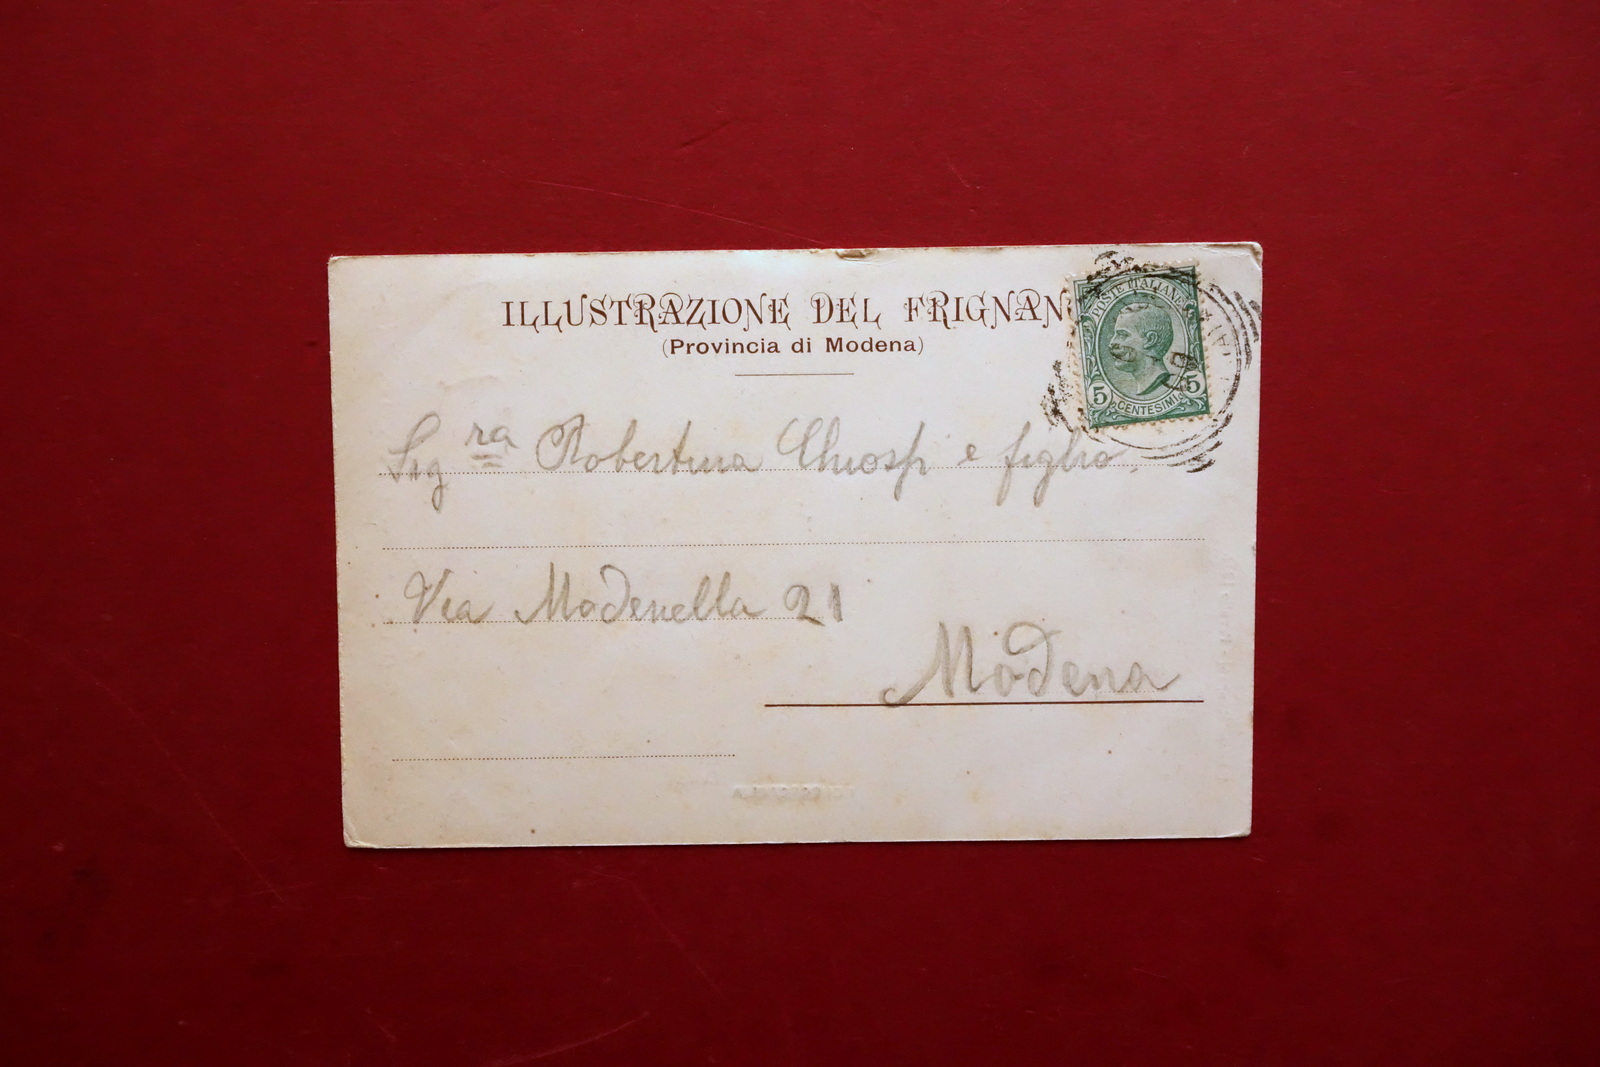 ILLUSTRAZIONE DEL FRIGNAN
(Provincia di Modena)
POSTE ITALIANE
5 5
CENTESIMI
07
Sigra Robertina Chiossi e figlio.
Via Modenella 21
Modena